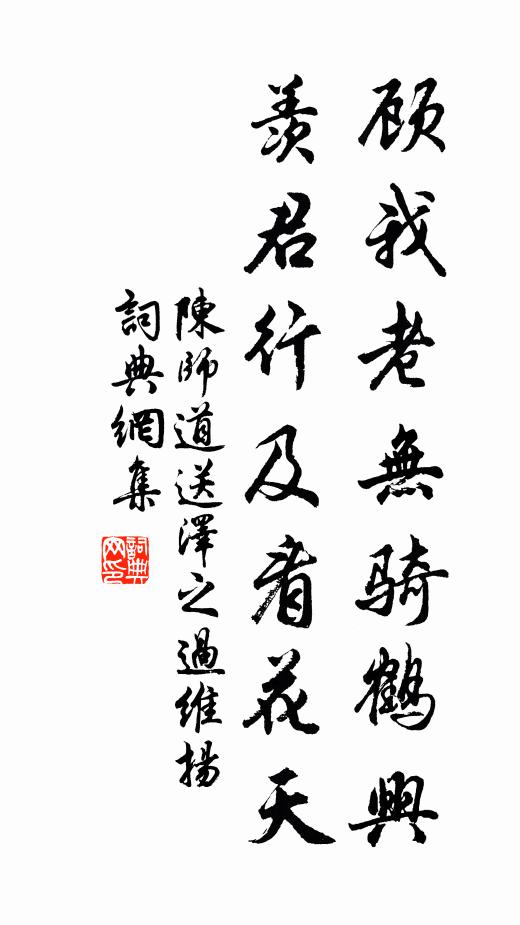 顾我老無骑鹤興
羨君行及看花天
陳師道送澤之過維揚
詞典網集
詞典网印